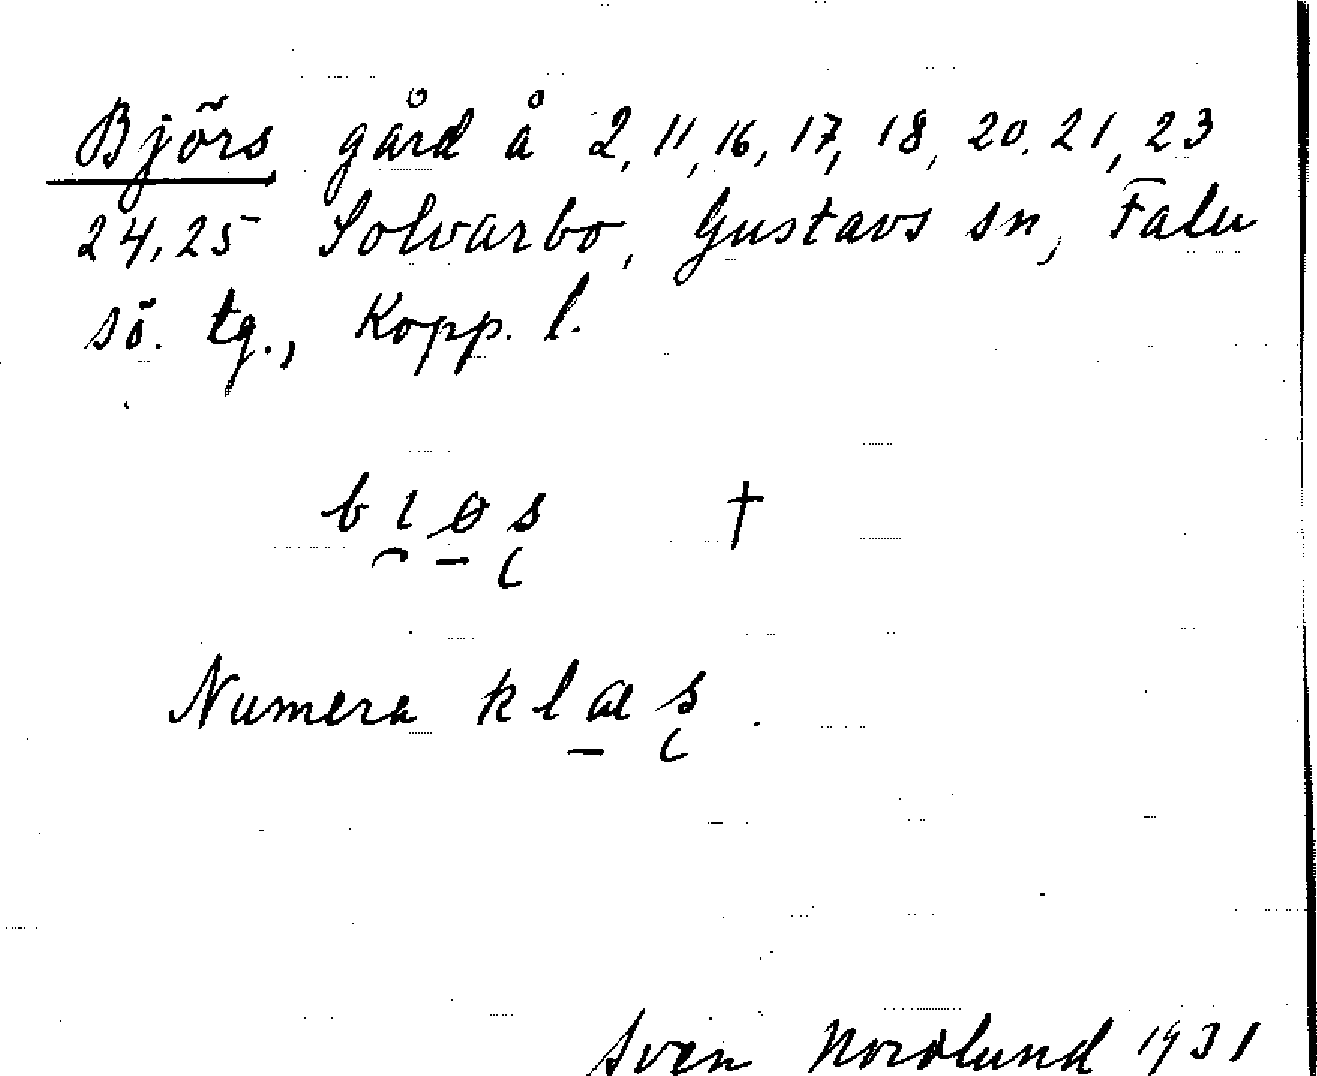 Björs gård å 2, 11, 16, 17, 18, 20, 21, 23
24, 25 Solvarbo, Gustavs sn, Falu
sö. tg., Kopp. l.
bɩøs †
Numera klæs.
Sven Nordlund 1931